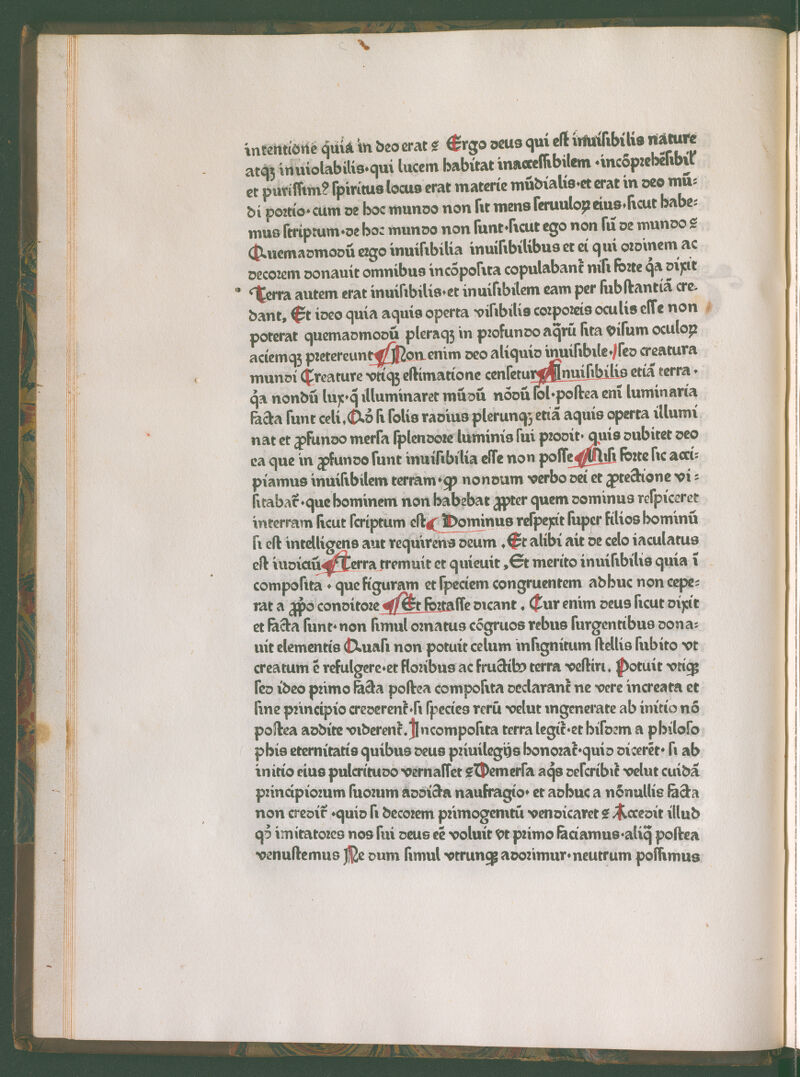 intentione quia in deo erat ⁊ Ergo deus qui eſt inuiſibilis nature
atqꝫ inuiolabilis·qui lucem habitat inacceſſibilem ·incōprehēſibilꝭ
et puriſſimꝰ ſpiritus locus erat materie mūdialis·et erat in deo mū⸗
di portio·cum de hoc mundo non ſit mens ſeruuloꝝ eius·ſicut habe⸗
mus ſcriptum·de hoc mundo non ſunt·ſicut ego non ſū de mundo ⁊
Quemadmodū ergo inuiſibilia inuiſibilibus et ei qui ordinem ac
decorem donauit omnibus incōpoſita copulabant᷑ niſi forte q̄a dixit
Terra autem erat inuiſibilis·et inuiſibilem eam per ſubſtantiā cre⸗
dant, Et ideo quia aquis operta viſibilis corporeis oculis eſſe non
poterat quemadmodū pleraqꝫ in profundo aq̄rū ſita viſum oculoꝝ
aciemqꝫ pretereunt ¶ Non enim deo aliquid inuiſibile·ſed creatura
mundi Creature vtiqꝫ eſtimatione cenſetur ¶ Inuiſibilis etiā terra·
q̄a nondū lux·q̄ illuminaret mūdū nōdū ſol·poſtea enī luminaria
facta ſunt celi, Qď ſi ſolis radius plerunqꝫ etiā aquis operta illumi
nat et ꝓfundo merſa ſplendore luminis ſui prodit· quis dubitet deo
ea que in ꝓfundo ſunt inuiſibilia eſſe non poſſe ¶ Niſi forte ſic acci⸗
piamus inuiſibilem terram·ꝙ nondum verbo dei et ꝓtectione vi⸗
ſitabat᷑·que hominem non habebat ꝓpter quem dominus reſpiceret
interram ſicut ſcriptum eſt ¶ Dominus reſpexit ſuper filios hominū
ſi eſt intelligens aut requirens deum . Et alibi ait de celo iaculatus
eſt iudiciū ¶ Terra tremuit et quieuit , Et merito inuiſibilis quia ī
compoſita · que figuram et ſpeciem congruentem adhuc non cepe⸗
rat a ꝓpo conditore ¶ Et fortaſſe dicant . Cur enim deus ſicut dixit
et facta ſunt·non ſimul ornatus cōgruos rebus ſurgentibus dona⸗
uit elementis Quaſi non potuit celum inſignitum ſtellis ſubito vt
creatum ē refulgere·et floribus ac fructibꝫ terra veſtiri. Potuit vtiqꝫ
ſed ideo primo facta poſtea compoſita declarant᷑ ne vere increata et
ſine principio crederent᷑·ſi ſpecies rerū velut ingenerate ab initio nō
poſtea addite viderent᷑. Incompoſita terra legit᷑·et hiſdem a philoſo
phis eternitatis quibus deus priuilegijs honorat᷑·quid dicerēt· ſi ab
initio eius pulcritudo vernaſſet ⁊ Demerſa aq̄s deſcribit᷑ velut cuidā
principiorum ſuorum addicta naufragio· et adhuc a nōnullis facta
non credit᷑ ·quid ſi decorem primogenitū vendicaret ⁊ Accedit illud
qď imitatores nos ſui deus eē voluit vt primo faciamus·aliq̄ poſtea
venuſtemus Ne dum ſimul vtrunqꝫ adorimur·neutrum poſſimus